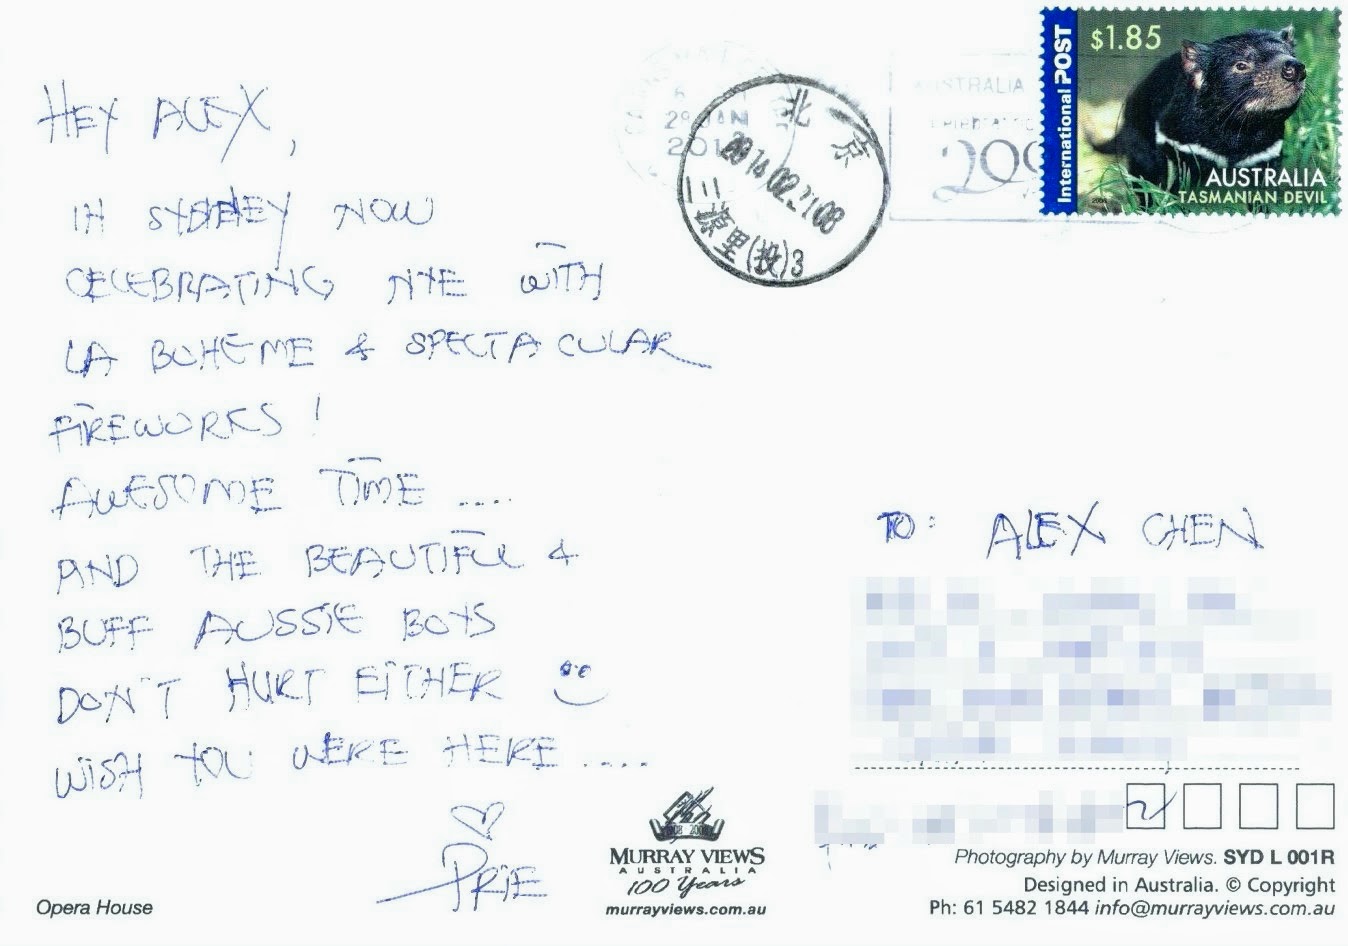 HEY ALEX,
IN SYDNEY NOW
CELEBRATING NYE WITH
LA BOHEME & SPECTACULAR
FIREWORKS !
AWESOME TIME ....
AND THE BEAUTIFUL &
BUFF AUSSIE BOYS
DON'T HURT EITHER
WISH YOU WERE HERE ....
PRIE
Opera House
29 JAN
北京
2014.02.21.08
源里(投)3
AUSTRALIA
International POST
$1.85
AUSTRALIA
TASMANIAN DEVIL
TO: ALEX CHEN
MURRAY VIEWS
AUSTRALIA
100 Years
murrayviews.com.au
Photography by Murray Views. SYD L 001R
Designed in Australia. © Copyright
Ph: 61 5482 1844 info@murrayviews.com.au